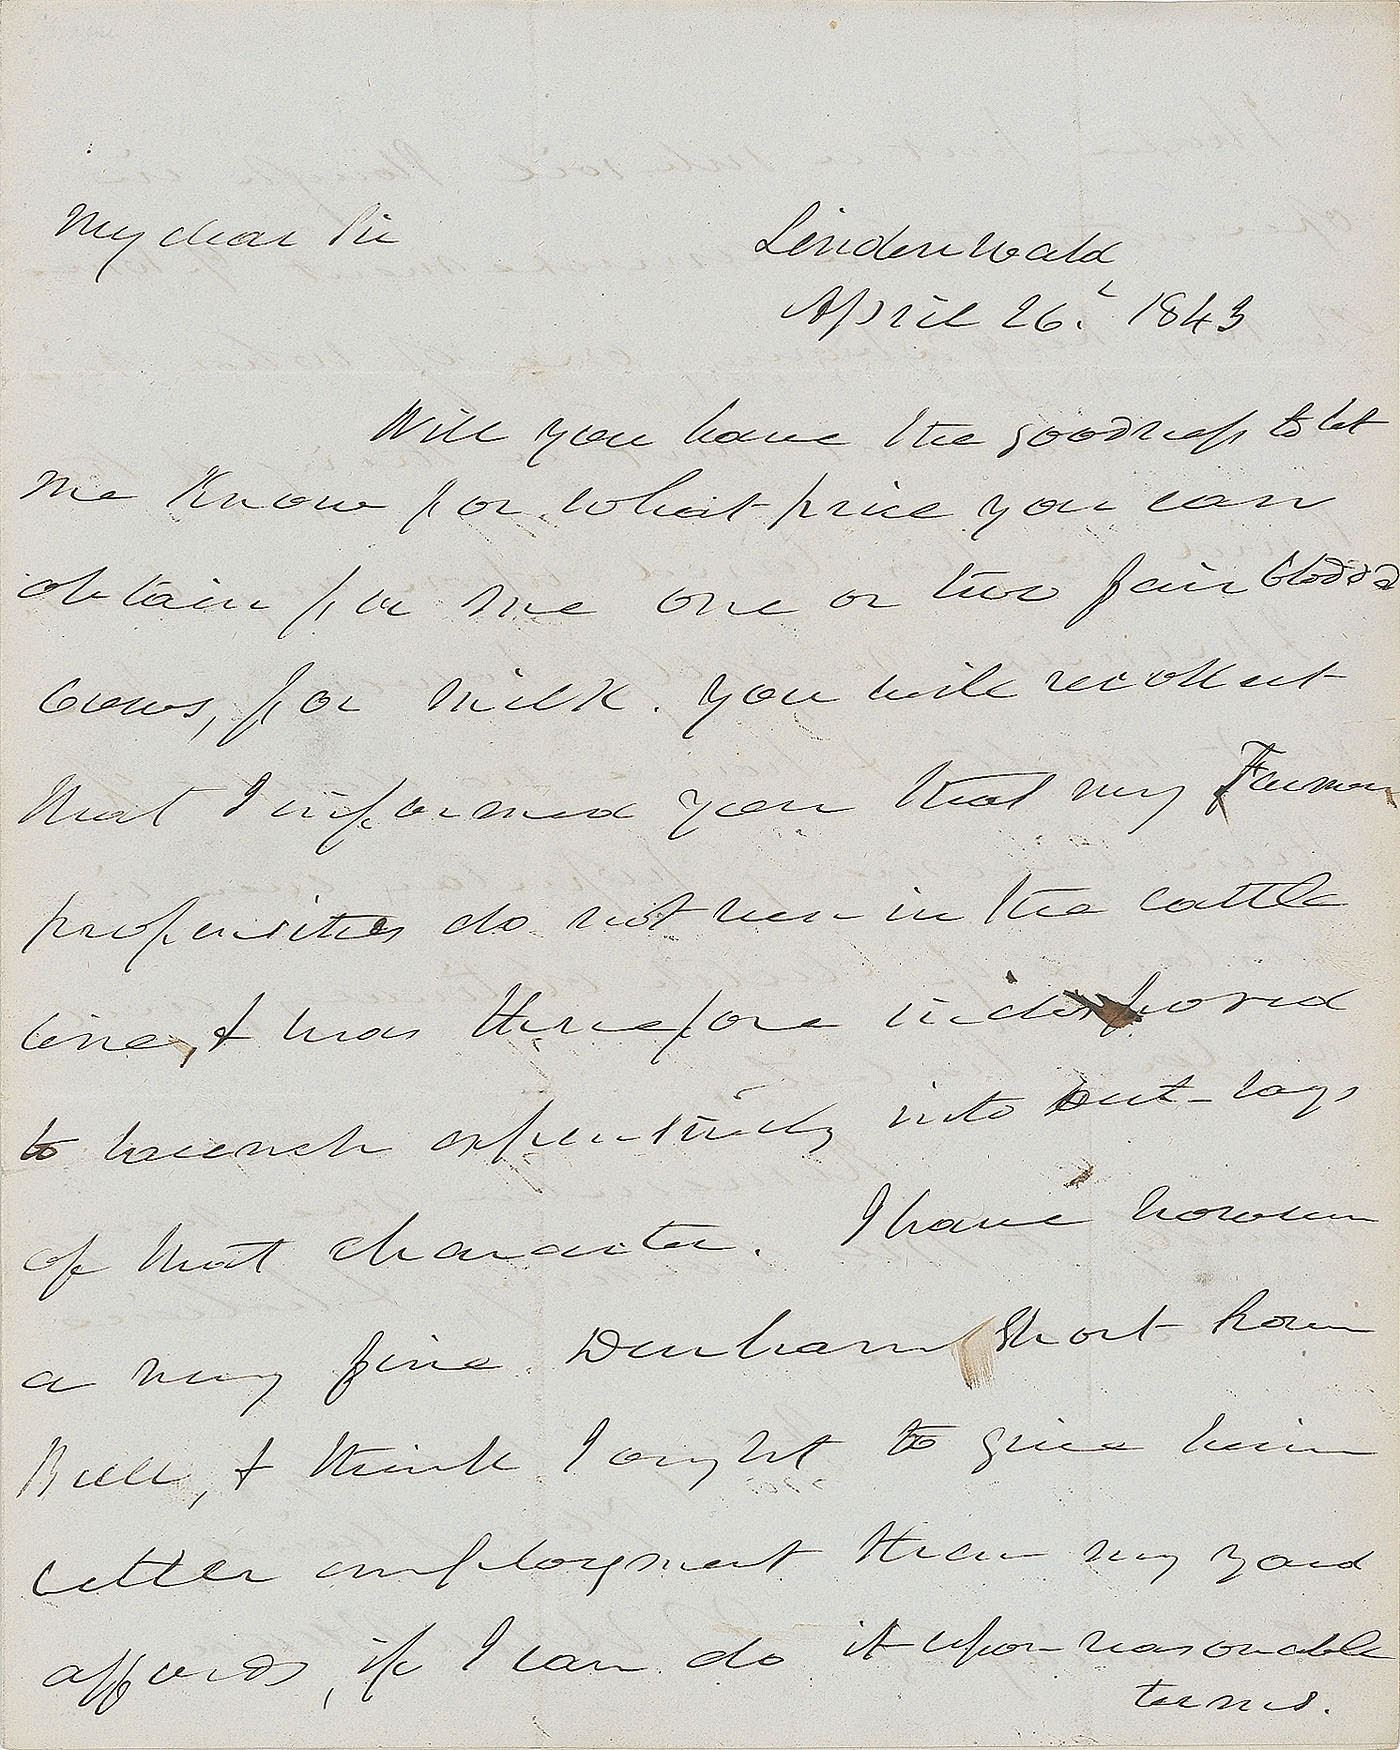 My dear Sir
Lindenwald
April 26. 1843
Will you have the goodness to let
me know for what price you can
obtain for me one or two fair blood
Cows, for milk. You will recollect
that I informed you that my Farmer
propensities do not run in the cattle
line, & was therefore indisposed
to launch expensively into out-lays
of that character. I have however
a very fine Durham Short horn
Bull, & think I ought to give him
better employment than my yard
affords, if I can do it upon reasonable
terms.